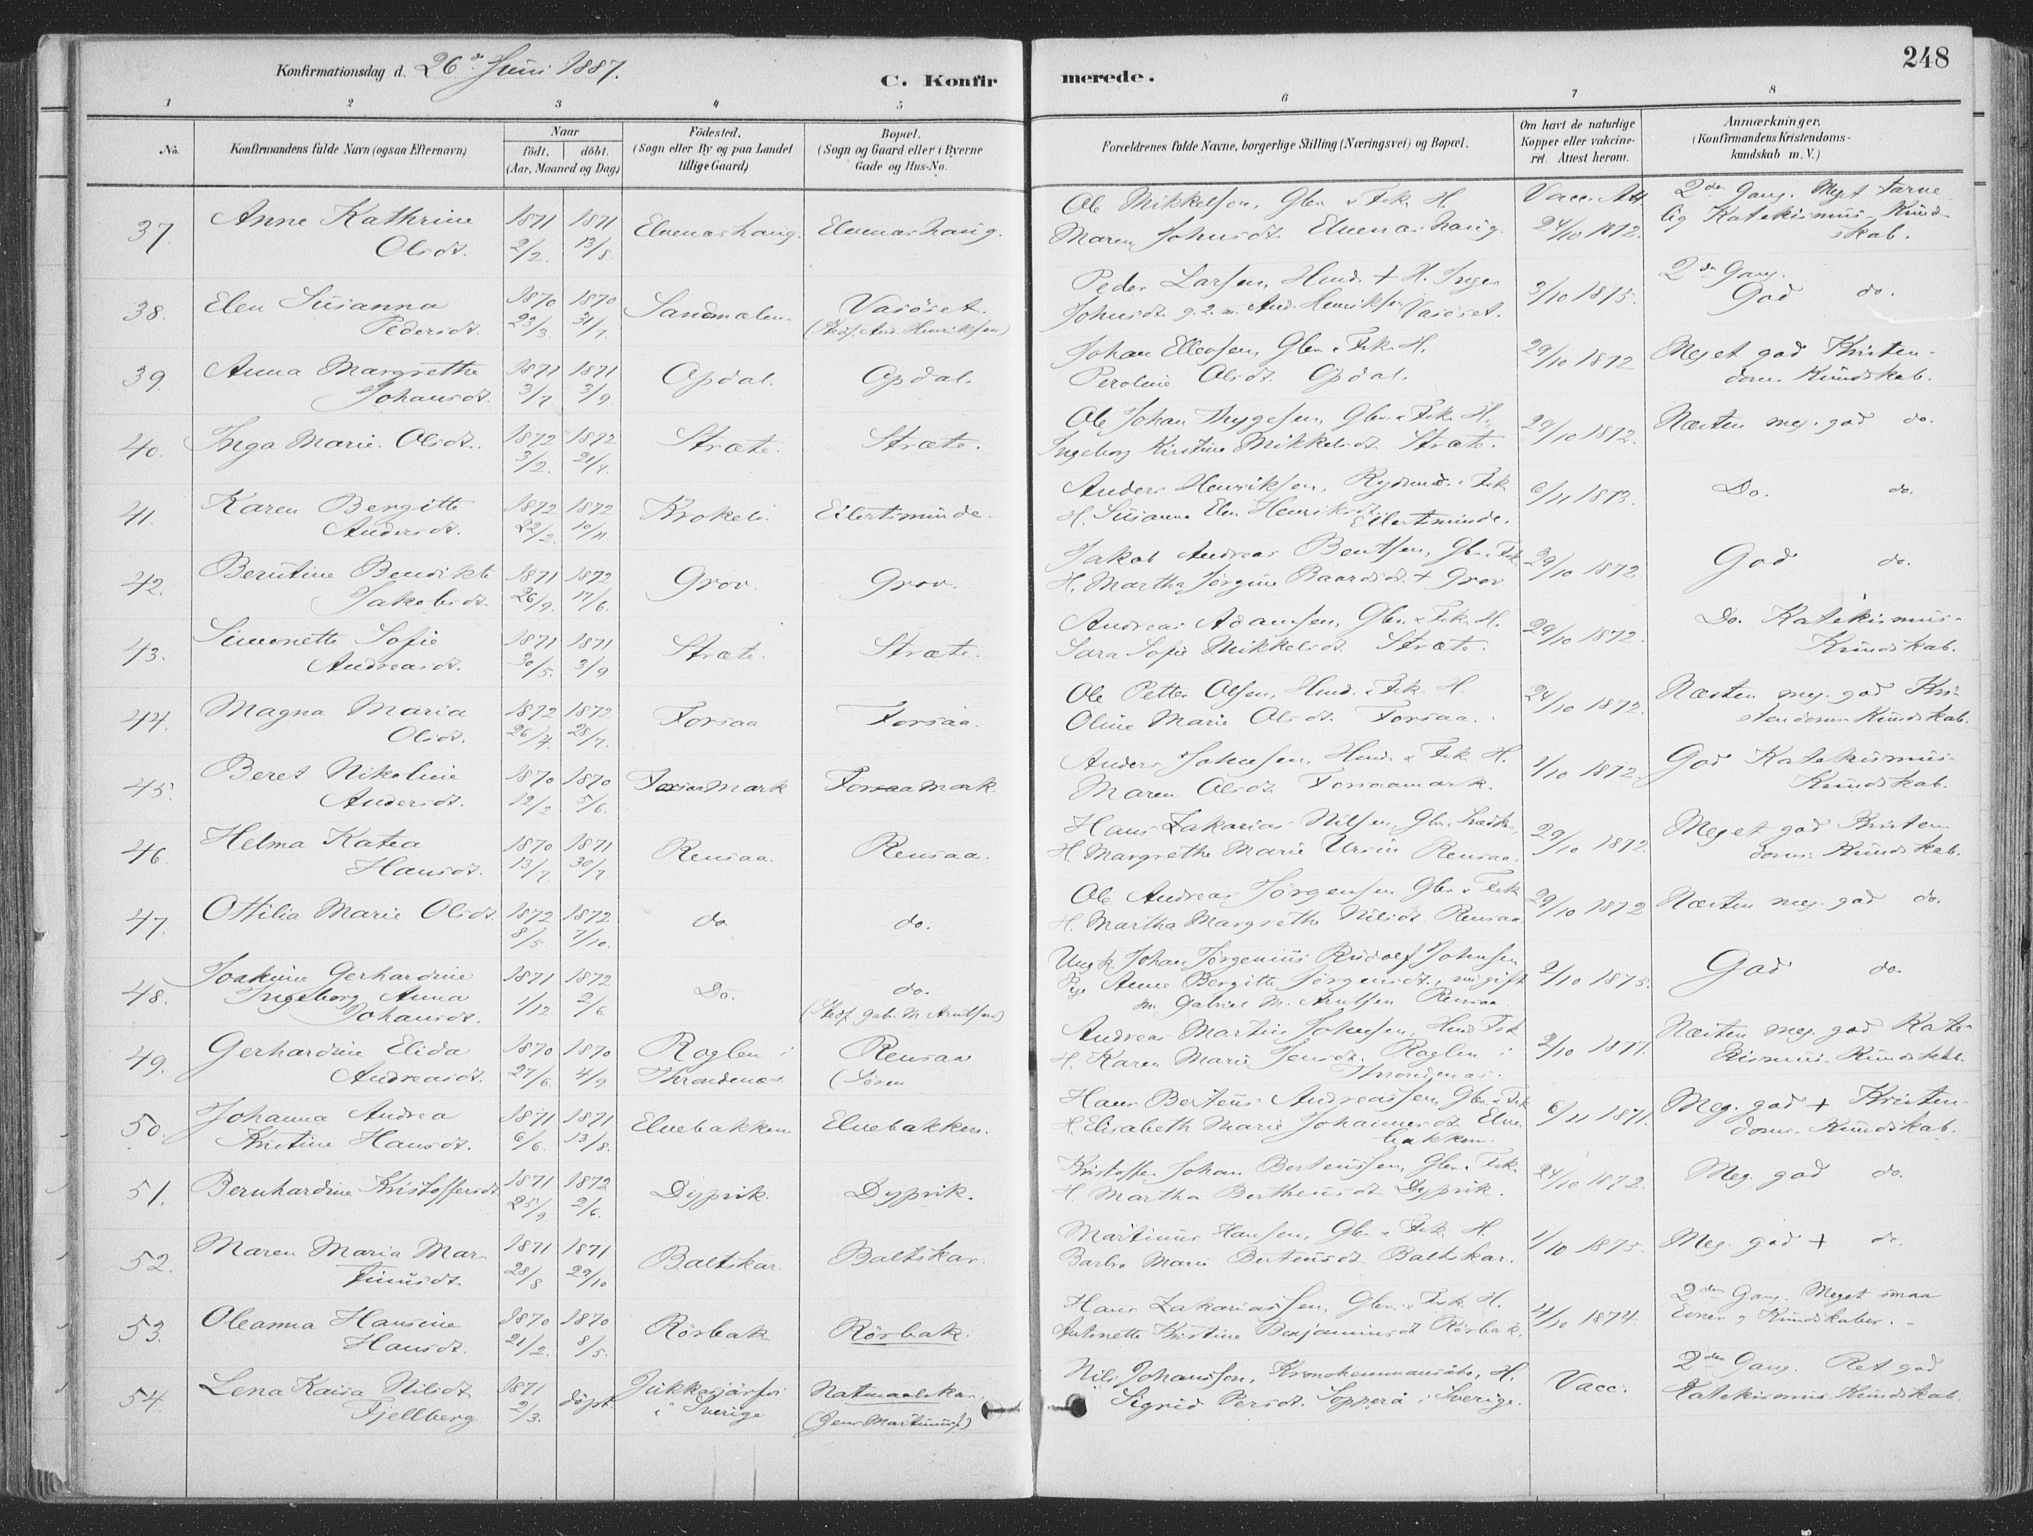 248
Konfirmationsdag d. 26de Juni 1887.
C. Konfirmerede.
1 2 3 4 5 6 7 8
No.
Konfirmandens fulde Navn (ogsaa Efternavn)
Naar
födt. döbt.
(Aar, Maaned og Dag)
Födested.
(Sogn eller By og paa Landet
tillige Gaard)
Bopæl.
(Sogn og Gaard eller i Byerne
Gade og Hus-No.
Forældrenes fulde Navne, borgerlige Stilling (Næringsvei) og Bopæl.
Om havt de naturlige
Kopper eller vakcine-
ret. Attest herom.
Anmærkninger.
(Konfirmandens Kristendoms-
kundskab m. V.)
37. Anne Kathrine 1871 1871 Elvenæshaug. Elvenæshaug. Ole Mikkelsen, Gbr. & Fisk. H. Vacc. Att 2den Gang. Meget tarve-
Olsdt. 2/2. 13/8 Maren Johnsdt. Elvenæshaug. 24/10 1872. lig Katekismus-Kund-
skab.
38. Elen Susanna 1870 1870 Sandmælen. Vasöset. Peder Larsen, Hmd. + H. Inger 3/10 1875. 2den Gang.
Pedersdt. 23/3. 31/7. (Stedf. And. Henriksen) Johnsdt. g. 2. m. And. Henriksen Vasöset. God do.
39. Anna Margrethe 1871 1871 Opdal. Opdal. Johan Ellevsen, Gbr. & Fisk. H. 29/10 1872 Meget god Kristen-
Johansdt. 3/7. 3/9 Peroline Olsdt. Opdal. doms Kundskab.
40. Inga Marie Olsdt. 1872 1872 Stræte. Stræte. Ole Johan Thygesen, Gbr. & Fisk. H. 29/10 1872. Næsten meg. god do.
3/2. 21/4. Ingeborg Kirstine Mikkelsdt. Stræte.
41. Karen Bergitte 1872 1872 Krokeli Eilertsminde. Anders Henriksen, Rydsmd. & Fisk 6/11 1873. Do. do.
Andersdt. 22/2. 10/11 H. Susanna Elen Henriksdt. Eilertsminde.
42. Berntine Bendikte 1871 1872 Grov. Grov. Jakob Andreas Bentsen, Gbr. & Fisk. 29/10 1872. God do.
Jakobsdt. 26/9. 17/6. H. Martha Jörgine Baardsdt + Grov
43. Simonette Sofie 1871 1871 Stræte. Stræte. Andreas Adamsen, Gbr. & Fisk. H. 29/10 1872. Do. Katekismus-
Andreasdt. 30/5. 3/9 Sara Sofie Mikkelsdt Stræte. Kundskab.
44. Magna Maria 1872 1872 Forsaa Forsaa. Ole Petter Olsen, Hmd. & Fisk. H. 24/10 1872. Næsten meg. god Kri-
Olsdt. 26/4. 28/7. Oline Marie Olsdt. Forsaa. stendoms Kundskab.
45. Beret Nikoline 1870 1870 Forsaamark Forsaamark. Anders Johnsen, Hmd. & Fisk. H. 1/10 1872. God Katekismus-
Andersdt. 12/2 5/6. Maren Olsdt. Forsaamark. Kundskab.
46. Helma Katea 1870 1871 Rensaa. Rensaa. Hans Zakarias Nilsen, Gbr. 29/10 1872. Meget god Kristen
Hansdt. 13/7. 30/7 H. Margrethe Marie Ursin Rensaa. doms. Kundskab.
47. Ottilia Marie Olsdt. 1872 1872 do do. Ole Andreas Jörgensen Gbr. & Fisk 29/10 1872 Næsten meg. god do.
8/5. 7/10. H. Martha Margrethe Nilsdt. Rensaa
48. Joakine Gerhardine 1871 1872 Do. do. Ungk Johan Jörgenius Rudolf Johnsen 2/10 1873. God do.
Ingeborg Anna 1/12 2/6 (Stedf. Gab. M. Arntsen) Pige Anne Bergitte Jörgensdt.
Johansdt. m. Gabriel M. Arntsen Rensaa.
49. Gerhardine Elida 1870 1870 Roglen i Rensaa Andreas Martin Johnsen, Hmd. Fisk 2/10 1877. Næsten meg. god Kate-
Andreasdt. 27/6. 4/9 Throndenæs. (Sören H. Karen Marie Jensdt. Roglen i kismus. Kundskab.
Throndenæs.
50. Johanna Andrea 1871 1871 Elvebakken Elvebakken. Hans Berteus Andreassen, Gbr. & Fisk 6/11 1871. Meg. god + Kristen-
Kristine Hansdt. 6/6. 13/8. H. Elisabeth Marie Johannesdt Elve- doms. Kundskab.
bakken.
51. Bernhardine Kristoffersdt. 1871 1872 Dyprik. Dyprik. Kristoffer Johan Berteussen, Gbr. & Fisk. 24/10 1872. Meg. god do.
25/9. 2/6. H. Martha Bertheusdt Dyprik.
52. Maren Maria Mar- 1871 1871 Baltskar. Baltskar. Martinus Hansen, Gbr. & Fisk. H. 1/10 1875 Meg. god + do.
tinusdt. 28/8 29/10 Barbr. Marie Berteusdt Baltskar.
53. Oleanna Hansine 1870 1870 Rörbak Rörbak. Hans Zakariassen, Gbr. & Fisk H. 4/10 1874. 2den Gang. Meget smaa
Hansdt. 21/2. 8/5. Antonette Kristine Benjaminsdt Rörbak. Evner og Kundskaber.
54. Lena Kaisa Nilsdt 1871 döpt Jukkasjärfvi Natmaalskar. Nils Johanssen, Kronohemmansåbo, H. Vacc. 2den Gang. Ret god
Fjellberg 2/3. i Sverige (Jens Martinus) Sigrid Persdt. Sopperå i Sverige. Katekismus. Kundskab.